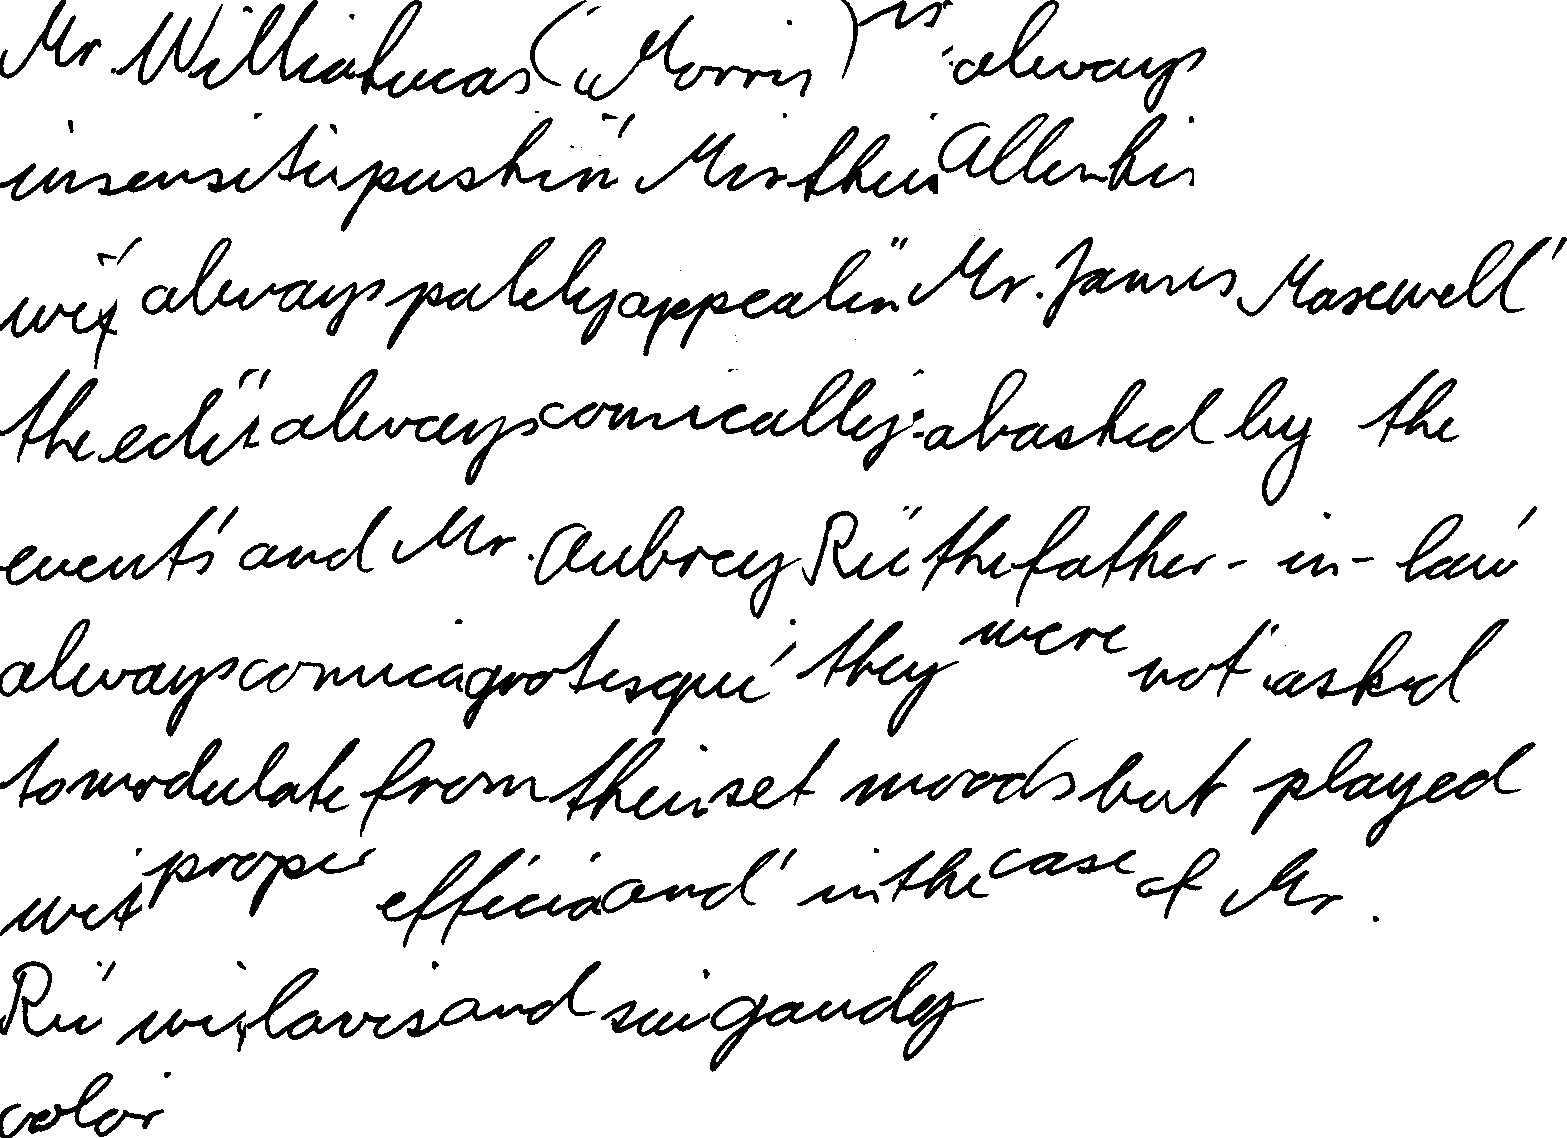 Mr. Willia Lucas (Morris) is always
insensiti pushin Mr. Mirthin Allen his
wif always palely appealin" Mr. James Maxwell"
the edit" always comically abashed by the
events' and Mr. Aubrey Ri the father-in-law
always comica grotesque' they were not asked
to modulate from their set moods but played
wit proper efficia and in the case of Mr.
Ri wi lavis and gaudy
color